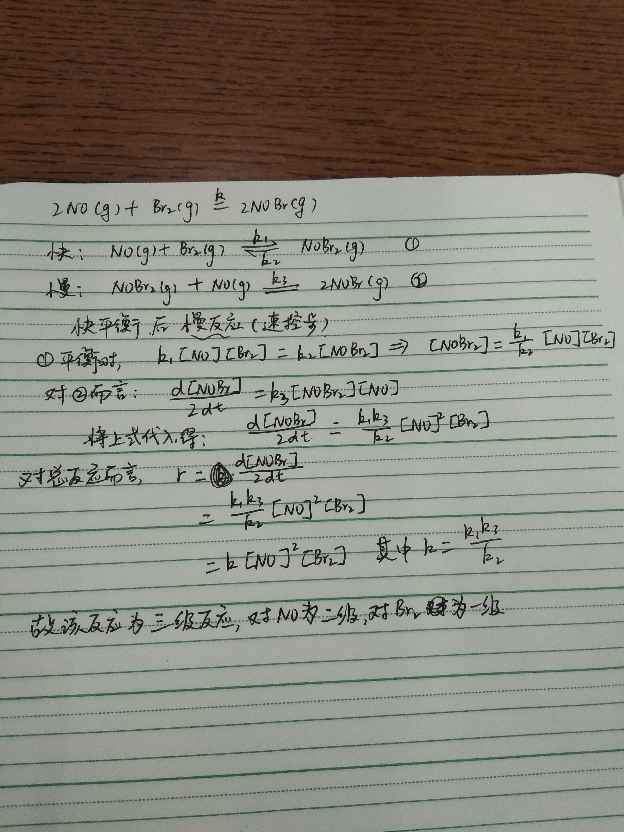 2NO(g) + Br₂(g) =k= 2NOBr(g)
快: NO(g) + Br₂(g) ⇌ k₁ k₂ NOBr₂(g) ①
慢: NOBr₂(g) + NO(g) =k₃= 2NOBr(g) ②
快平衡后慢反应(速控步)
①平衡时, k₁[NO][Br₂] = k₂[NOBr₂] ⇒ [NOBr₂] = k₁/k₂ [NO][Br₂]
对②而言: d[NOBr]/2dt = k₃[NOBr₂][NO]
将上式代入得: d[NOBr]/2dt = k₁k₃/k₂ [NO]²[Br₂]
对总反应而言, r = d[NOBr]/2dt
= k₁k₃/k₂ [NO]²[Br₂]
= k[NO]²[Br₂] 其中 k = k₁k₃/k₂
故该反应为三级反应, 对NO为二级, 对Br₂为一级